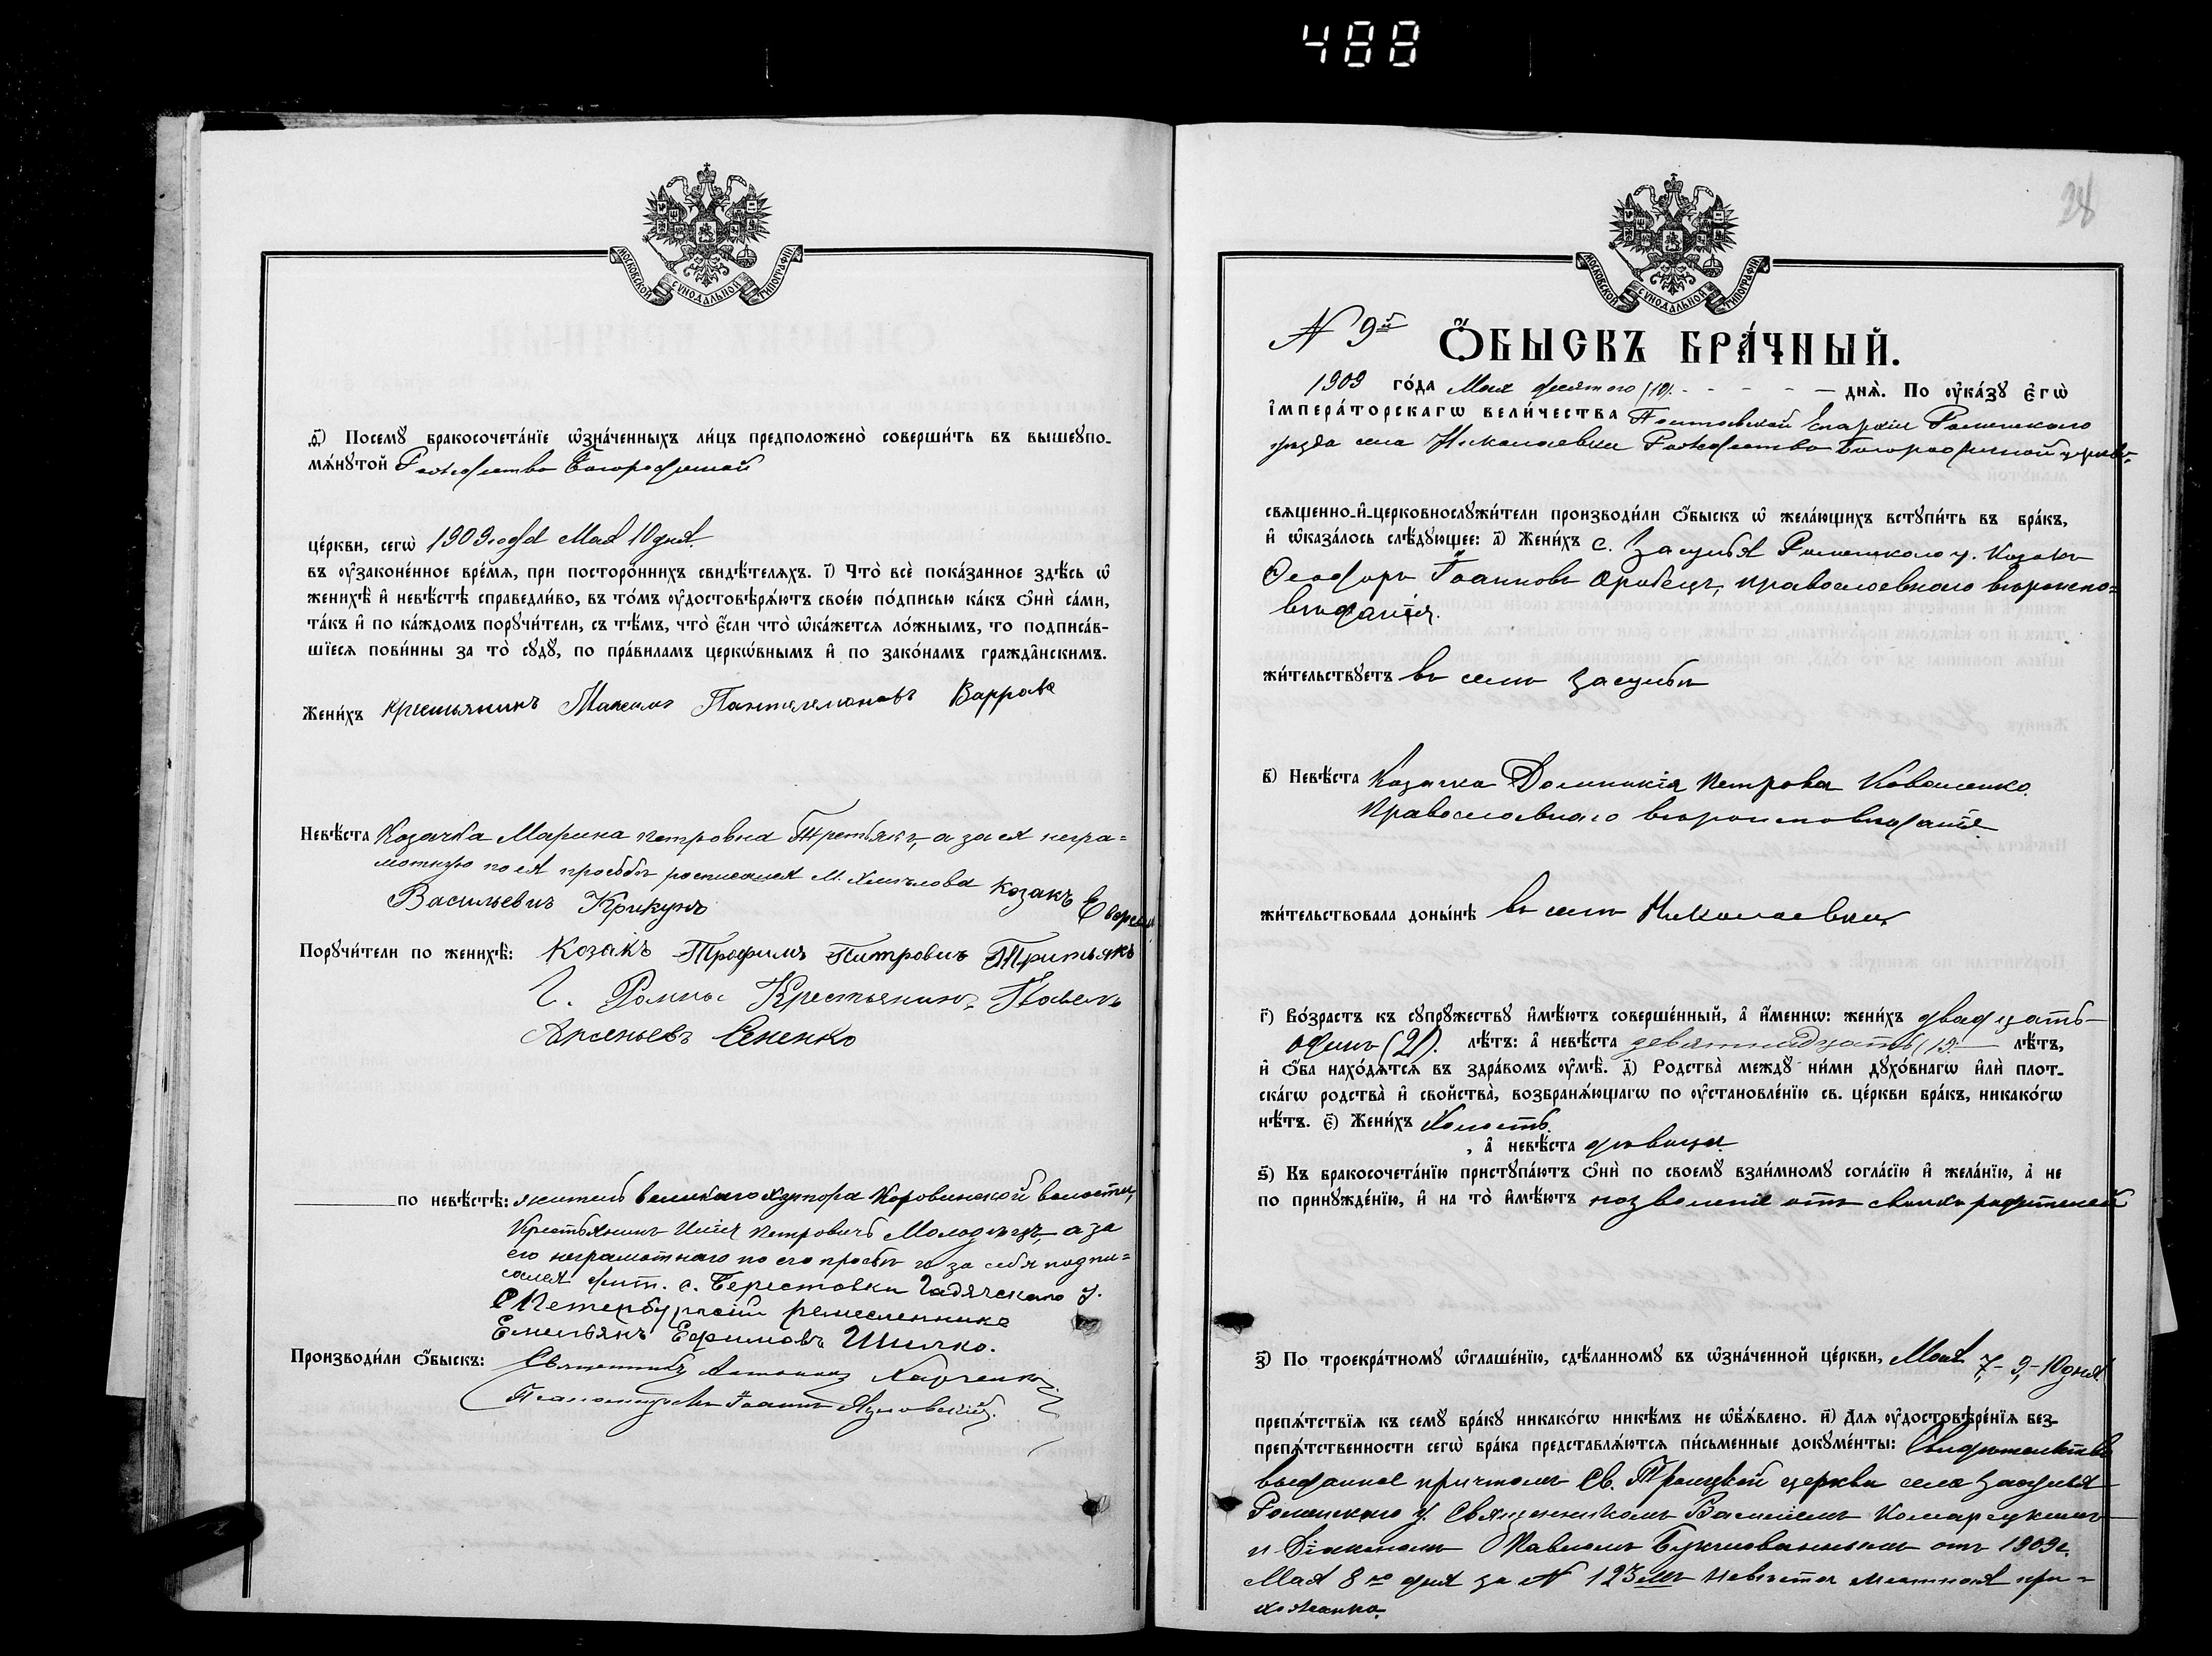 488
МОСКОВСКОЙ СѴНОДАЛЬНОЙ ТИПОГРАФІИ
ѳ҃) Посемꙋ бракосочета́нїе ѡ҆зна́ченныхъ ли́цъ предположено̀ соверши́ть въ вышеꙋпо-
мѧ́нꙋтой Рождество Богородичной
це́ркви, сегѡ̀ 1909 года Мая 10 дня.
въ ᲂу҆законе́нное вре́мѧ, при посторо́ннихъ свидѣ́телѧхъ. і҃) Что̀ всѐ пока́занное здѣ́сь ѡ
женихѣ̀ и҆ невѣ́стѣ справедли́во, въ то́мъ ᲂу҆достовѣрѧ́ютъ свое́ю по́дписью ка́къ ѻ҆нѝ са́ми,
та́къ и҆ по ка́ждомъ порꙋчи́тели, съ тѣ́мъ, что̀ є҆́сли что̀ ѡ҆ка́жетсѧ ло́жнымъ, то подписа́в-
шїесѧ пови́нны за то̀ сꙋдꙋ̀, по пра́виламъ церкѡ́внымъ и҆ по зако́намъ гражда̑нскимъ.
Жени́хъ крестьянинъ Максимъ ПантелемоновъВаррава
Невѣ́ста Козачка Марина Петровна Третьякъ, а за ея негра=
мотную по ея просьбѣ росписался М. Хмѣлова Козакъ
Васильевичъ Крикунъ
Порꙋчи́тели по женихѣ̀: Козакъ Трофимъ Питровичъ Тритьякъ
Г. Ромны Крестьянинъ Павелъ
Арсеньевъ Сненко
по невѣ́стѣ: житель великаго хутора Коровинской волости,
Крестьянинъ Илія Петровичъ Молодецъ, а за
его неграмотнаго по его просьбѣ и за себя подпи=
сался жит. с. Берестовки Гадячскаго у.
СПетербургскій ремесленникъ
Емельянъ Ефимовъ Шилко.
Производи́ли ѻ҆́быскъ: Священникъ Антоній Харченко
Псаломщикъ Іоаннъ
28
МОСКОВСКОЙ СѴНОДАЛЬНОЙ ТИПОГРАФІИ
№ 9й Ѻ҆́БЫСКЪ БРА́ЧНЫЙ.
1909 го́да Мая десятого (10). - - - - дня̀. По ᲂу҆ка́зꙋ є҆гѡ̀
і҆мпера́торскагѡ вели́чества Полтавской Епархіи Роменского
уѣзда села Николаевки Рождество Богородичной церкви,
свѧщенно-и҆-церковнослꙋжи́тели производи́ли ѻ҆́быскъ ѡ жела́ющихъ встꙋпи́ть въ бра́къ,
и҆ ѡ҆каза́лось слѣ́дꙋющее: а҃) Жени́хъ с. Засулья Роменского у. Козакъ
Ѳеодоръ Іоанновъ Оробецъ, православного вѣроиспо=
вѣданія.
жи́тельствꙋетъ въ селѣ Засульѣ
в҃) Невѣ́ста Козачка Домникія Петрова Коваленко.
Православнаго вѣроисповѣданія.
жи́тельствовала доны́нѣ въ селѣ Николаевки.
г҃) Во́зрастъ къ сꙋпрꙋ́жествꙋ и҆мѣ́ютъ соверше́нный, а҆ и҆́меннѡ: жени́хъ двадцать
одинъ (21). лѣ́тъ: а҆ невѣ́ста девятнадцать (19. лѣ́тъ,
и҆ ѻ҆́ба нахо́дѧтсѧ въ здра́вомъ ᲂу҆мѣ̀. д҃) Родства̀ междꙋ ни́ми дꙋхо́внагѡ и҆лѝ плот-
ска́гѡ родства̀ и҆ свойства̀, возбранѧ́ющагѡ по ᲂу҆становле́нїю св. це́ркви бра́къ, никако́гѡ
нѣ́тъ. є҃) Жени́хъ Холостъ.
, а҆ невѣ́ста дѣвица.
ѕ҃) Къ бракосочета́нїю пристꙋпа́ютъ ѻ҆нѝ по своемꙋ̀ взаи́мномꙋ согла́сїю и҆ жела́нїю, а҆ не
по принꙋжде́нїю, и҆ на то̀ и҆мѣ́ютъ позволеніе отъ своихъ родителей
з҃) По троекра́тномꙋ ѡ҆глаше́нїю, сдѣ́ланномꙋ въ ѡ҆зна́ченной це́ркви, Мая 7,- 9,- 10 дня
препѧ́тствїѧ къ семꙋ̀ бра́кꙋ никако́гѡ никѣ́мъ не ѡ҆б̾ѧ́влено. и҃) Для ᲂу҆достовѣре́нїѧ без-
препѧ́тственности сегѡ̀ бра́ка представлѧ́ютсѧ пи́сьменные докꙋме́нты: Свидѣтельство
выданное причтомъ Св. Троицкой церкви села Засулья
Роменского у. Священникомъ Василіемъ Комарецкимъ
и Діакономъ Павломъ отъ 1909 г.
Мая 8го дня за № 123мъ Невѣста мѣстная при=
хожанка.